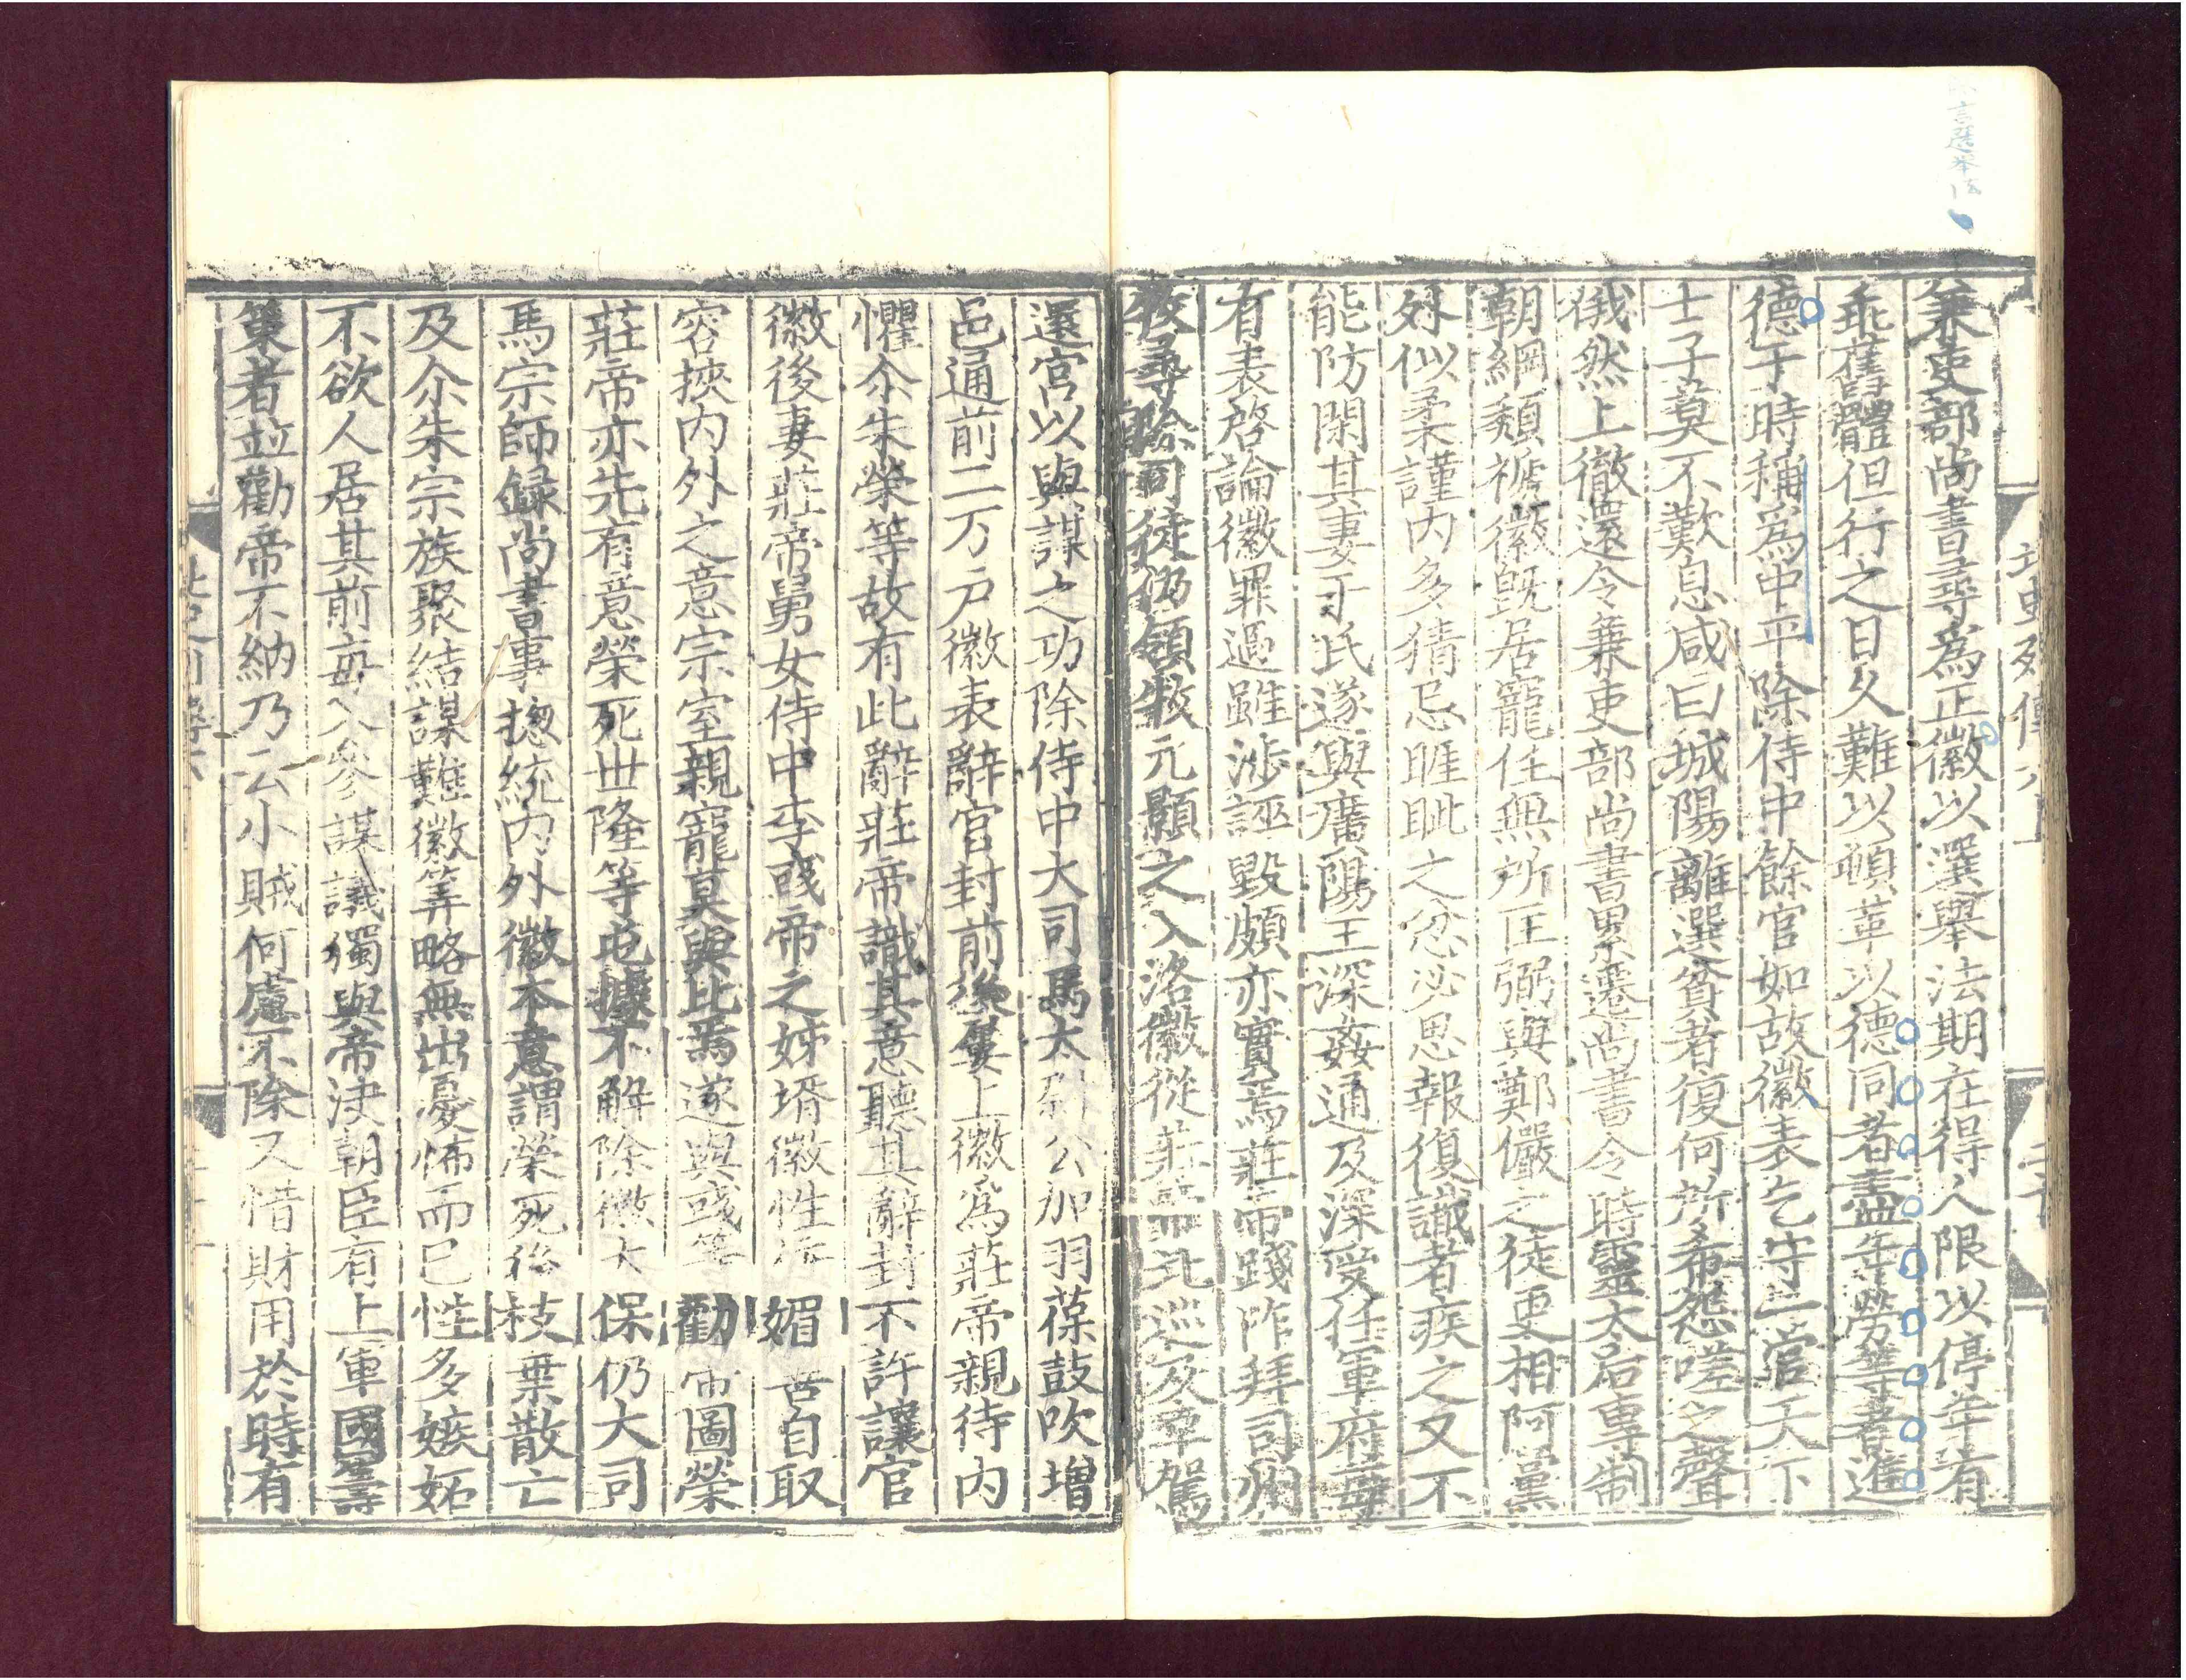 言選舉法
兼吏部尚書尋爲正徽以選舉法期在得人限以停年有
乖舊體但行之日久難以頓革以德同者盡年勞等者進
德于時稱爲中平除侍中餘官如故徽表乞守一官天下
士子莫不歎息咸曰城陽離選貧者復何所希怨嗟之聲
俄然上徹還令兼吏部尚書累遷尚書令時靈太后專制
朝綱頹褫徽旣居寵任無所匡弼與鄭儼之徒更相阿黨
外似柔謹內多猜忌睚眦之忿必思報復識者疾之又不
能防閑其妻于氏遂與廣陽王深姦通及深受任軍府每
有表啓論徽罪過雖涉誣毀頗亦實焉莊帝踐阼拜司州
牧尋除司徒仍領牧元顥之入洛徽從莊帝北巡及車駕
還宮以與謀之功除侍中大司馬太尉公加羽葆鼓吹增
邑通前二万戶徽表辭官封前後屢上徽爲莊帝親待內
懼尒朱榮等故有此辭莊帝識其意聽其辭封不許讓官
徽後妻莊帝舅女侍中李彧帝之姊壻徽性佞媚善自取
容挾內外之意宗室親寵莫與比焉遂與彧等勸帝圖榮
莊帝亦先有意榮死世隆等屯據不解除徽太保仍大司
馬宗師録尚書事揔統內外徽本意謂榮死後枝葉散亡
及尒朱宗族聚結謀難徽筭略無出憂怖而已性多嫉妬
不欲人居其前每入參謀議獨與帝決朝臣有上軍國籌
策者並勸帝不納乃云小賊何慮不除又惜財用於時有
北史列傳六